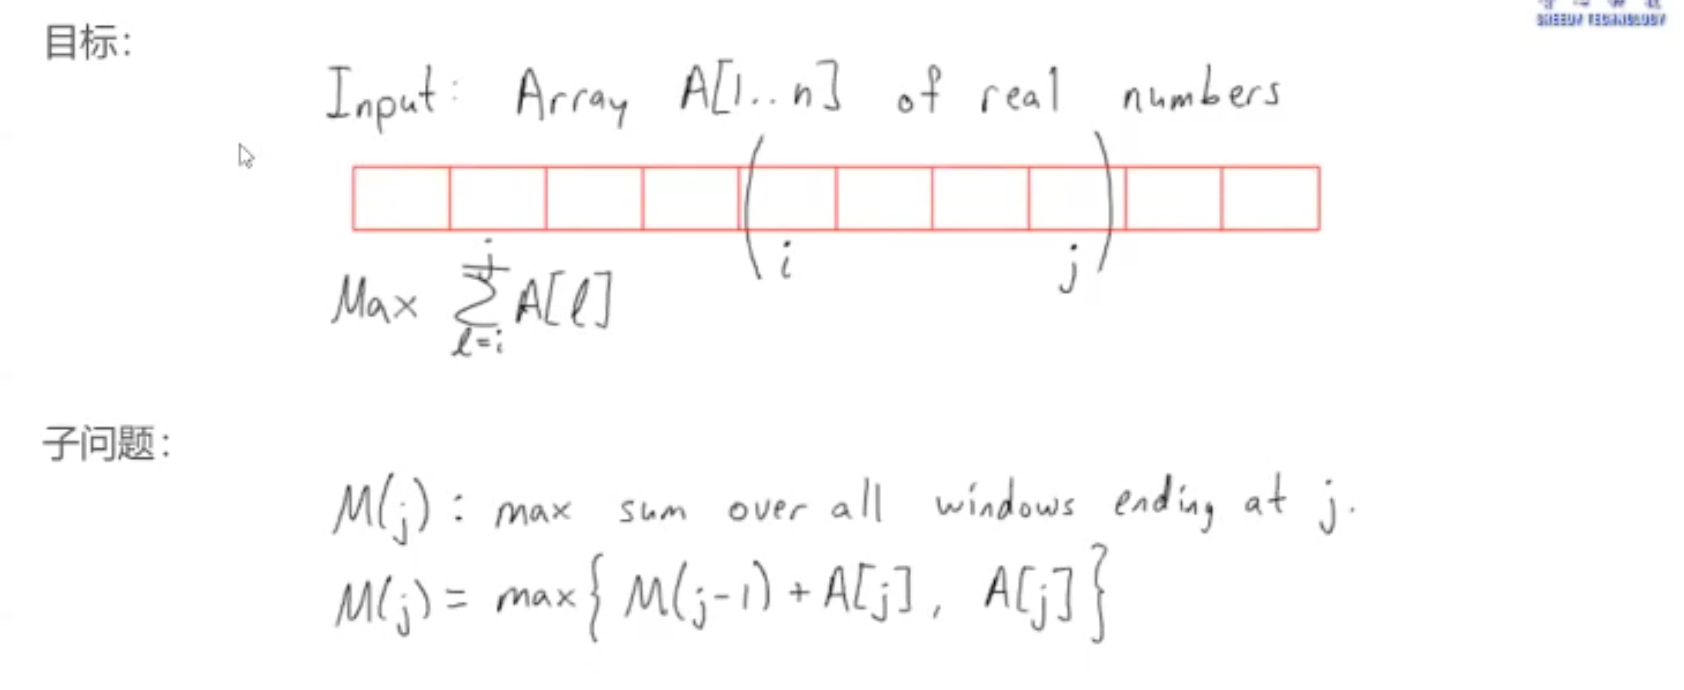 目标：
Input: Array A[1..n] of real numbers
i j
Max ∑_{l=i}^{j} A[l]
子问题：
M(j): max sum over all windows ending at j.
M(j) = max{ M(j-1) + A[j], A[j] }